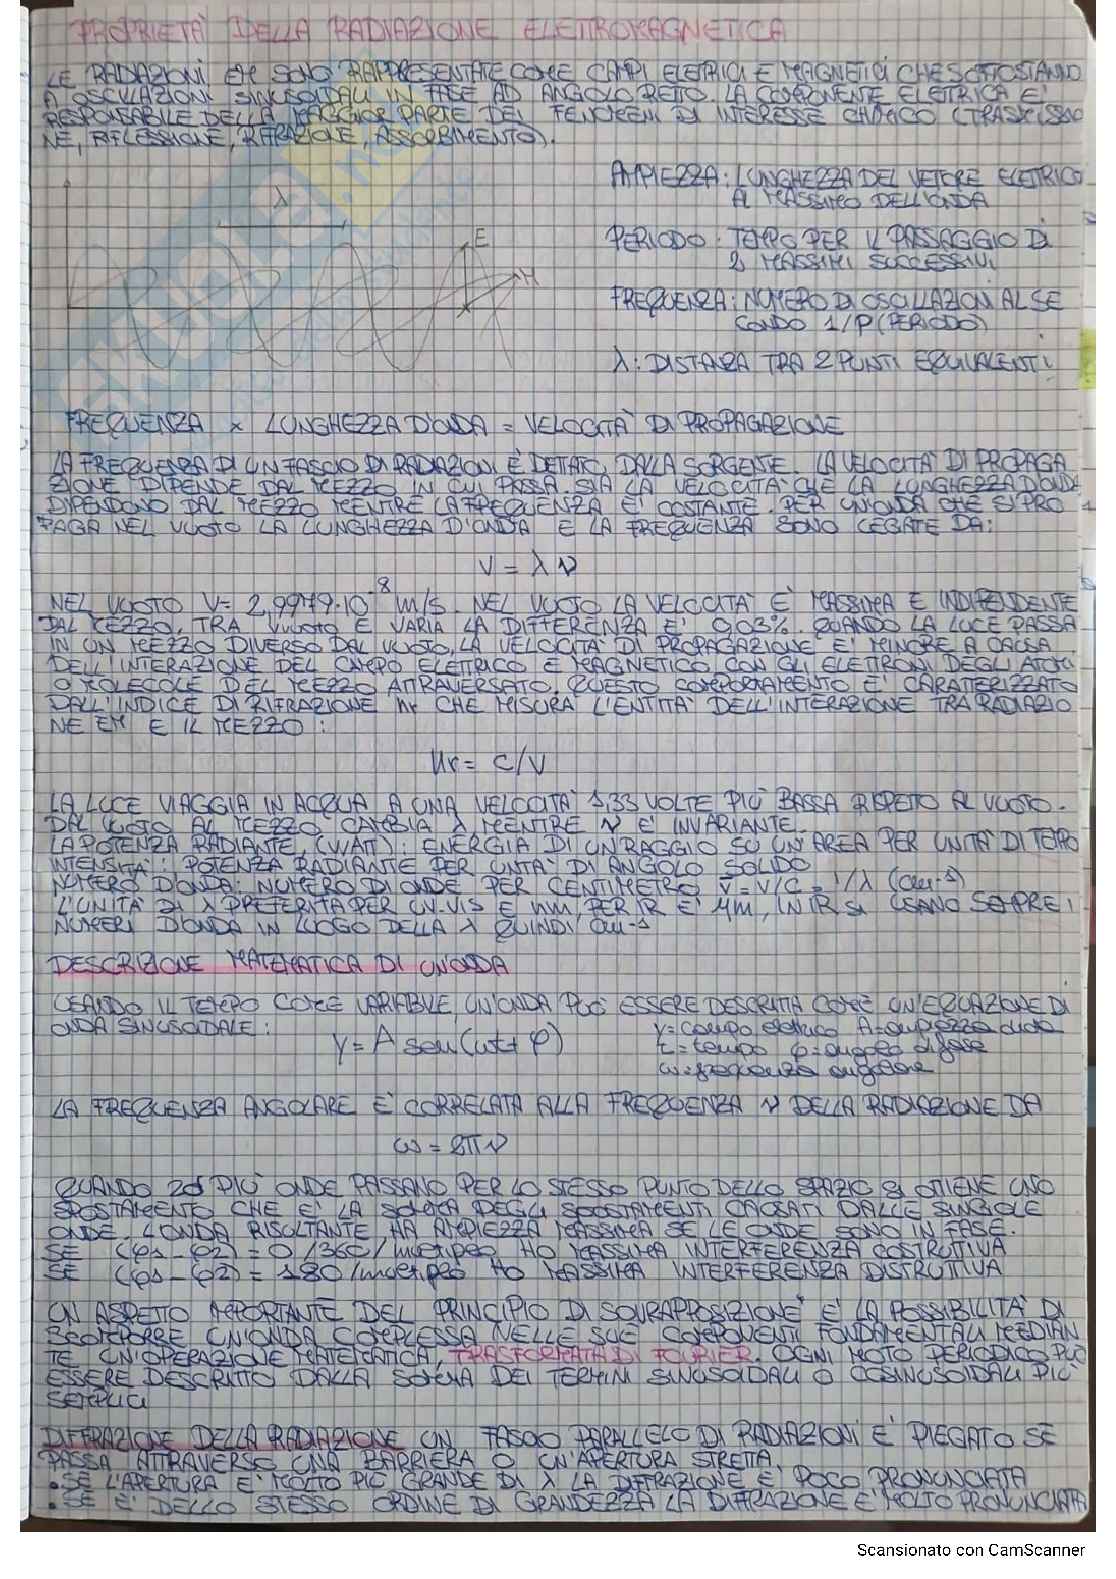 PROPRIETÀ DELLA RADIAZIONE ELETTROMAGNETICA
LE RADIAZIONI EM SONO RAPPRESENTATE COME CAMPI ELETTRICI E MAGNETICI CHE SOTTOSTANNO
A OSCILLAZIONI SINUSOIDALI IN FASE AD ANGOLO RETTO. LA COMPONENTE ELETTRICA E'
RESPONSABILE DELLA MAGGIOR PARTE DEI FENOMENI DI INTERESSE CHIMICO (TRASMISSIO
NE, RIFLESSIONE, RIFRAZIONE, ASSORBIMENTO).
AMPIEZZA: LUNGHEZZA DEL VETTORE ELETTRICO
AL MASSIMO DELL'ONDA
λ
PERIODO: TEMPO PER IL PASSAGGIO DI
2 MASSIMI SUCCESSIVI
E
H
FREQUENZA: NUMERO DI OSCILLAZIONI AL SE
CONDO 1/P (PERIODO)
λ: DISTANZA TRA 2 PUNTI EQUIVALENTI
FREQUENZA x LUNGHEZZA D'ONDA = VELOCITÀ DI PROPAGAZIONE
LA FREQUENZA DI UN FASCIO DI RADIAZIONI È DETTATO DALLA SORGENTE. LA VELOCITÀ DI PROPAGA
ZIONE DIPENDE DAL MEZZO IN CUI PASSA. SIA LA VELOCITÀ CHE LA LUNGHEZZA D'ONDA
DIPENDONO DAL MEZZO MENTRE LA FREQUENZA E' COSTANTE. PER UN'ONDA CHE SI PRO
PAGA NEL VUOTO LA LUNGHEZZA D'ONDA E LA FREQUENZA SONO LEGATE DA:
V = λ ν
NEL VUOTO V= 2,9979·10⁻⁸ m/s. NEL VUOTO LA VELOCITÀ È MASSIMA E INDIPENDENTE
DAL MEZZO, TRA VUOTO E VARIA LA DIFFERENZA E' 0,03%. QUANDO LA LUCE PASSA
IN UN MEZZO DIVERSO DAL VUOTO, LA VELOCITÀ DI PROPAGAZIONE E' MINORE A CAUSA
DELL'INTERAZIONE DEL CAMPO ELETTRICO E MAGNETICO CON GLI ELETTRONI DEGLI ATOMI
O MOLECOLE DEL MEZZO ATTRAVERSATO. QUESTO COMPORTAMENTO E' CARATTERIZZATO
DALL'INDICE DI RIFRAZIONE nr CHE MISURA L'ENTITÀ DELL'INTERAZIONE TRA RADIAZIO
NE EM E IL MEZZO:
nr = C/V
LA LUCE VIAGGIA IN ACQUA A UNA VELOCITÀ 1,33 VOLTE PIÙ BASSA RISPETTO AL VUOTO.
DAL VUOTO AL MEZZO CAMBIA λ MENTRE ν E' INVARIANTE.
LA POTENZA RADIANTE (WATT): ENERGIA DI UN RAGGIO SU UN AREA PER UNITÀ DI TEMPO
INTENSITA': POTENZA RADIANTE PER UNITA' DI ANGOLO SOLIDO
NUMERO D'ONDA: NUMERO DI ONDE PER CENTIMETRO ν̄ = V/C = 1/λ (cm-1)
L'UNITÀ DI λ PREFERITA PER UV-VIS E nm, PER IR E' μm, IN IR SI USANO SEMPRE I
NUMERI D'ONDA IN LUOGO DELLA λ QUINDI cm-1
DESCRIZIONE MATEMATICA DI UN'ONDA
USANDO IL TEMPO COME VARIABILE UN'ONDA PUÒ ESSERE DESCRITTA COME UN'EQUAZIONE DI
ONDA SINUSOIDALE:
y = A sen(ωt + φ)
y=campo elettrico A=ampiezza onda
t=tempo φ=angolo di fase
ω=frequenza angolare
LA FREQUENZA ANGOLARE E' CORRELATA ALLA FREQUENZA ν DELLA RADIAZIONE DA
ω = 2π ν
QUANDO 2 O PIÙ ONDE PASSANO PER LO STESSO PUNTO DELLO SPAZIO SI OTTIENE UNO
SPOSTAMENTO CHE E' LA SOMMA DEGLI SPOSTAMENTI CAUSATI DALLE SINGOLE
ONDE. L'ONDA RISULTANTE HA AMPIEZZA MASSIMA SE LE ONDE SONO IN FASE.
SE (φ1 - φ2) = 0/360/multiplo HO MASSIMA INTERFERENZA COSTRUTTIVA
SE (φ1 - φ2) = 180/multiplo HO MASSIMA INTERFERENZA DISTRUTTIVA
UN ASPETTO IMPORTANTE DEL PRINCIPIO DI SOVRAPPOSIZIONE E' LA POSSIBILITÀ DI
SCOMPORRE UN'ONDA COMPLESSA NELLE SUE COMPONENTI FONDAMENTALI MEDIAN
TE UN'OPERAZIONE MATEMATICA, TRASFORMATA DI FOURIER. OGNI MOTO PERIODICO PUÒ
ESSERE DESCRITTO DALLA SOMMA DEI TERMINI SINUSOIDALI O COSINUSOIDALI PIÙ
SEMPLICI
DIFFRAZIONE DELLA RADIAZIONE UN FASCIO PARALLELO DI RADIAZIONI È PIEGATO SE
PASSA ATTRAVERSO UNA BARRIERA O UN'APERTURA STRETTA.
• SE L'APERTURA E' MOLTO PIÙ GRANDE DI λ LA DIFFRAZIONE E' POCO PRONUNCIATA
• SE E' DELLO STESSO ORDINE DI GRANDEZZA LA DIFFRAZIONE E' MOLTO PRONUNCIATA
Scansionato con CamScanner